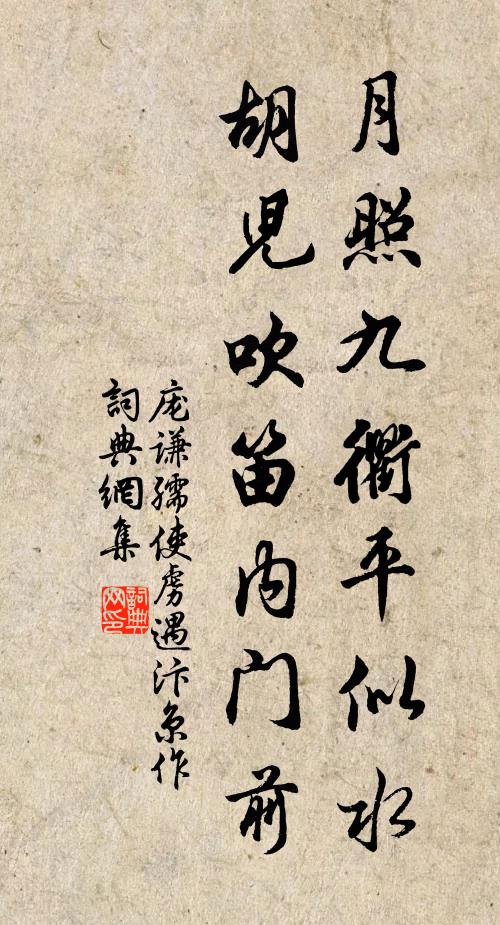 月照九衢平似水
胡児吹笛内门前
庞谦孺使虏遇汴京作
詞典網集
詞典网印